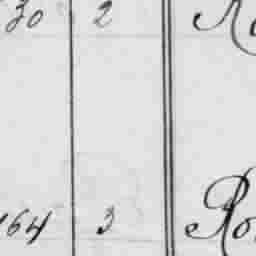 30 2
164 3 Ro